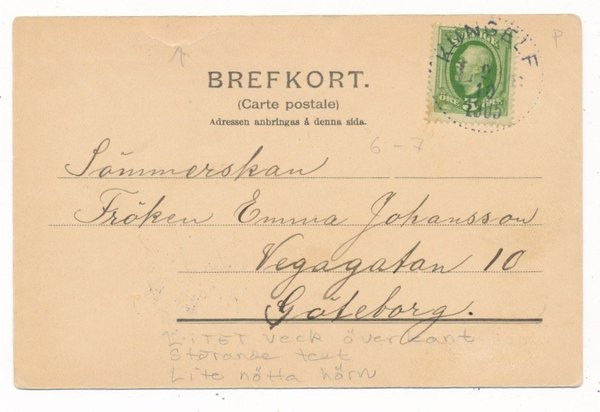 P
KUNGELF
1905
ÖRE 5
BREFKORT.
(Carte postale)
Adressen anbringas å denna sida.
6-7
Sömmerskan
Fröken Emma Johansson
Vegagatan 10
Göteborg.
LiTET veck överkant
Störande text
Lite nötta hörn